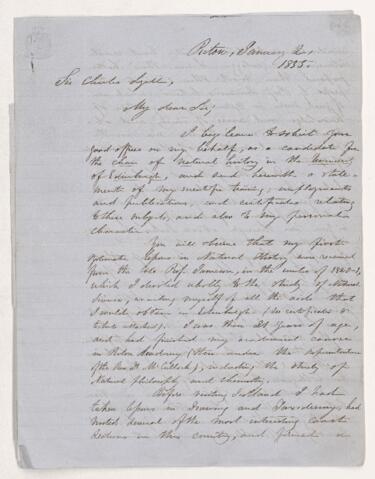 Pictou, January 2,
1855.
Sir Charles Lyell,
My dear Sir,
I beg leave to solicit your
good offices on my behalf, as a candidate for
the chair of Natural history in the University
of Edinburgh, and send herewith a state-
ment of my scientific training, employments
and publications, and certificates relating
to these subjects, and also to my personal
character.
You will observe that my first
systematic lessons in Natural History were received
from the late Prof. Jameson, in the winter of 1840-1,
which I devoted wholly to the study of Natural
Science, availing myself of all the aids that
I could obtain in Edinburgh (see certificates
attached). I was then 21 years of age,
and had finished my academical course
in Pictou Academy (then under the superintendence
of the Rev. Dr. McCulloch), including the study of
Natural philosophy and chemistry.
Before visiting Scotland I had
taken lessons in Drawing and Taxidermy, had
visited several of the most interesting coast
sections in this country, and formed a